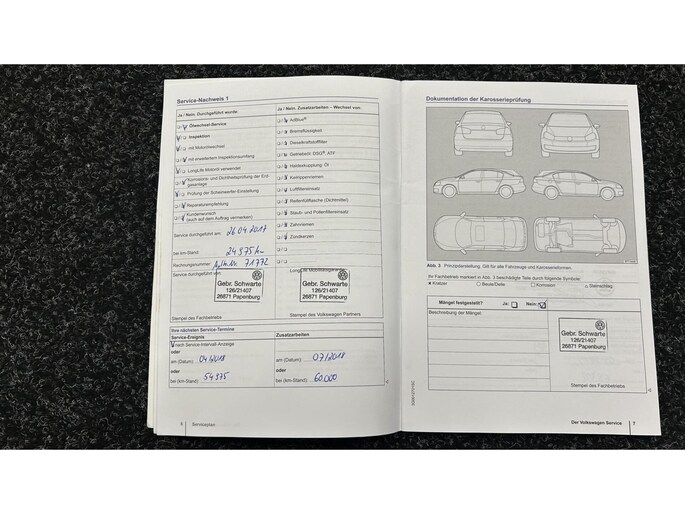 Service-Nachweis 1
Ja / Nein. Durchgeführt wurde:
Ölwechsel-Service
Inspektion
mit Motorölwechsel
mit erweitertem Inspektionsumfang
LongLife Motoröl verwendet
Korrosions- und Dichtheitsprüfung der Erdgasanlage
Prüfung der Scheinwerfer-Einstellung
Reparaturempfehlung
Kundenwunsch
(auch auf dem Auftrag vermerken)
Service durchgeführt am: 26.04.2017
bei km-Stand: 24 975 km
Rechnungsnummer: 71772
Service durchgeführt von:
Gebr. Schwarte
126/21407
26871 Papenburg
Stempel des Fachbetriebs
Ja / Nein. Zusatzarbeiten – Wechsel von:
AdBlue®
Bremsflüssigkeit
Dieselkraftstofffilter
Getriebeöl: DSG®, ATF
Haldexkupplung: Öl
Keilrippenriemen
Luftfiltereinsatz
Reifenfüllflasche (Dichtmittel)
Staub- und Pollenfiltereinsatz
Zahnriemen
Zündkerzen
Gebr. Schwarte
126/21407
26871 Papenburg
Stempel des Volkswagen Partners
Ihre nächsten Service-Termine
Service-Ereignis
nach Service-Intervall-Anzeige
oder
am (Datum): 04/2018
oder
bei (km-Stand): 54 975
Zusatzarbeiten
am (Datum): 07/2018
oder
bei (km-Stand): 60.000
6 Serviceplan
Dokumentation der Karosserieprüfung
Abb. 3 Prinzipdarstellung. Gilt für alle Fahrzeuge und Karosserieformen.
Ihr Fachbetrieb markiert in Abb. 3 beschädigte Teile durch folgende Symbole:
Kratzer Beule/Delle Korrosion Steinschlag
Mängel festgestellt? Ja: Nein:
Beschreibung der Mängel:
Gebr. Schwarte
126/21407
26871 Papenburg
Stempel des Fachbetriebs
Der Volkswagen Service 7